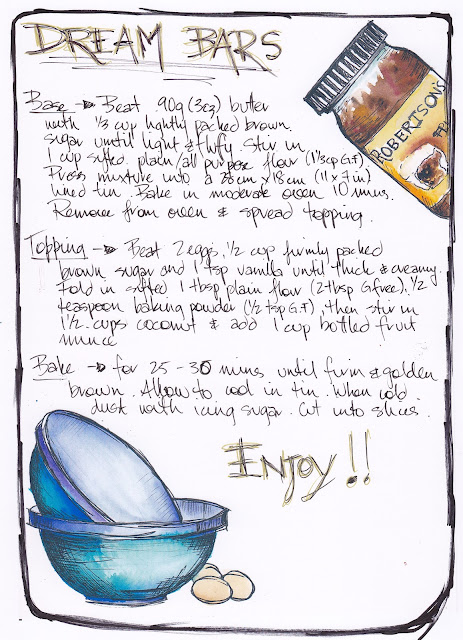 DREAM BARS
Base → Beat 90g (3oz) butter
with 1/3 cup lightly packed brown
sugar until light & fluffy. Stir in
1 cup sifted plain/all purpose flour (1 1/3 cup G.F)
Press mixture into a 28cm x 18cm (11 x 7 in)
lined tin. Bake in moderate oven 10 mins.
Remove from oven & spread topping.
ROBERTSON'S
Topping → Beat 2 eggs, 1/2 cup firmly packed
brown sugar and 1 tsp vanilla until thick & creamy.
Fold in sifted 1 tbsp plain flour (2 tbsp G.free), 1/2
teaspoon baking powder (1/2 tsp G.F), then stir in
1 1/2 cups coconut & add 1 cup bottled fruit
mince
Bake → for 25 - 30 mins until firm & golden
brown. Allow to cool in tin. When cold
dust with icing sugar. Cut into slices.
ENJOY!!